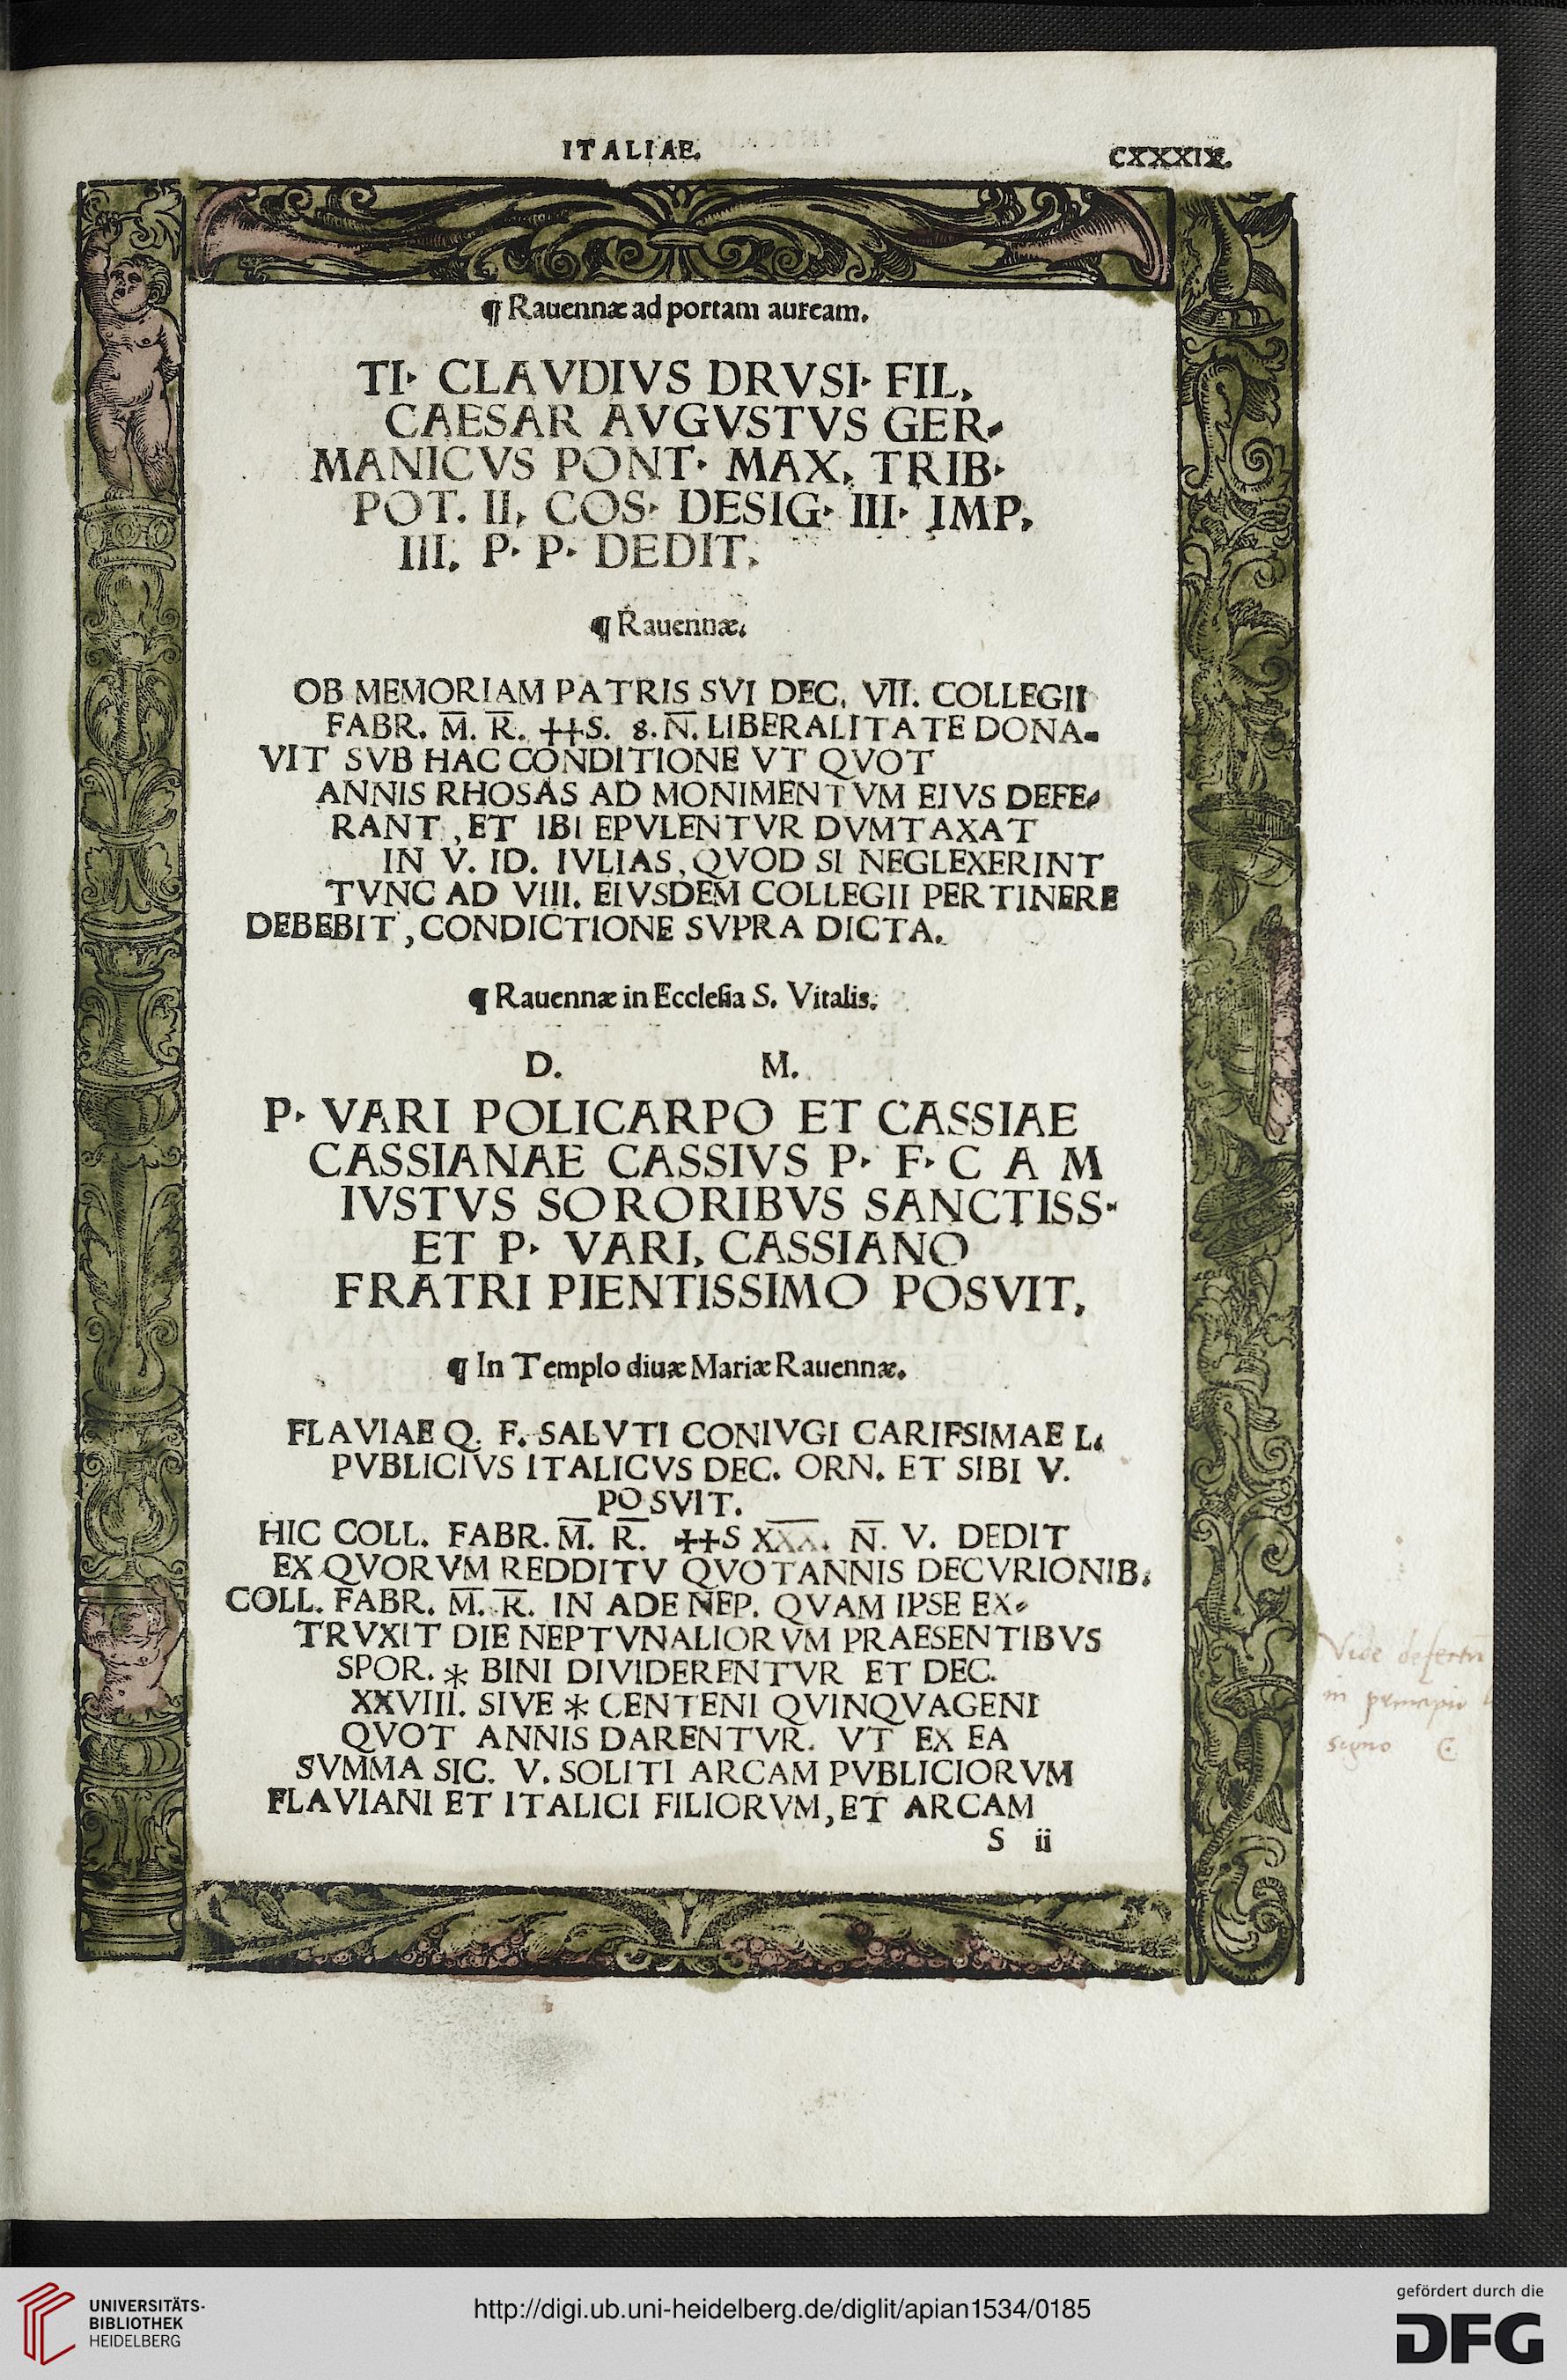 ITALIAE. CXXXIX.
¶ Rauennæ ad portam auream.
TI· CLAVDIVS DRVSI· FIL,
CAESAR AVGVSTVS GER-
MANICVS PONT· MAX, TRIB·
POT. II, COS· DESIG· III· IMP,
III. P· P· DEDIT,
¶ Rauennæ.
OB MEMORIAM PATRIS SVI DEC. VII. COLLEGII
FABR. M̅. R̅. ++S. 8. N̅. LIBERALITATE DONA-
VIT SVB HAC CONDITIONE VT QVOT
ANNIS RHOSAS AD MONIMENTVM EIVS DEFE-
RANT, ET IBI EPVLENTVR DVMTAXAT
IN V. ID. IVLIAS, QVOD SI NEGLEXERINT
TVNC AD VIII. EIVSDEM COLLEGII PERTINERE
DEBEBIT, CONDICTIONE SVPRA DICTA.
¶ Rauennæ in Ecclesia S. Vitalis.
D. M.
P· VARI POLICARPO ET CASSIAE
CASSIANAE CASSIVS P· F· C A M
IVSTVS SORORIBVS SANCTISS·
ET P· VARI, CASSIANO
FRATRI PIENTISSIMO POSVIT,
¶ In Templo diuæ Mariæ Rauennæ.
FLAVIAE Q. F. SALVTI CONIVGI CARIFSIMAE L.
PVBLICIVS ITALICVS DEC. ORN. ET SIBI V.
POSVIT.
HIC COLL. FABR. M̅. R̅. ++S X̅X̅X̅. N̅. V. DEDIT
EX QVORVM REDDITV QVOTANNIS DECVRIONIB.
COLL. FABR. M̅. R̅. IN ADE NEP. QVAM IPSE EX-
TRVXIT DIE NEPTVNALIORVM PRAESENTIBVS
SPOR. * BINI DIVIDERENTVR ET DEC.
XXVIII. SIVE * CENTENI QVINQVAGENI
QVOT ANNIS DARENTVR. VT EX EA
SVMMA SIC. V. SOLITI ARCAM PVBLICIORVM
FLAVIANI ET ITALICI FILIORVM, ET ARCAM
S ii
Vide defectū
in principio
signo C
UNIVERSITÄTS-
BIBLIOTHEK
HEIDELBERG
http://digi.ub.uni-heidelberg.de/diglit/apian1534/0185
gefördert durch die
DFG